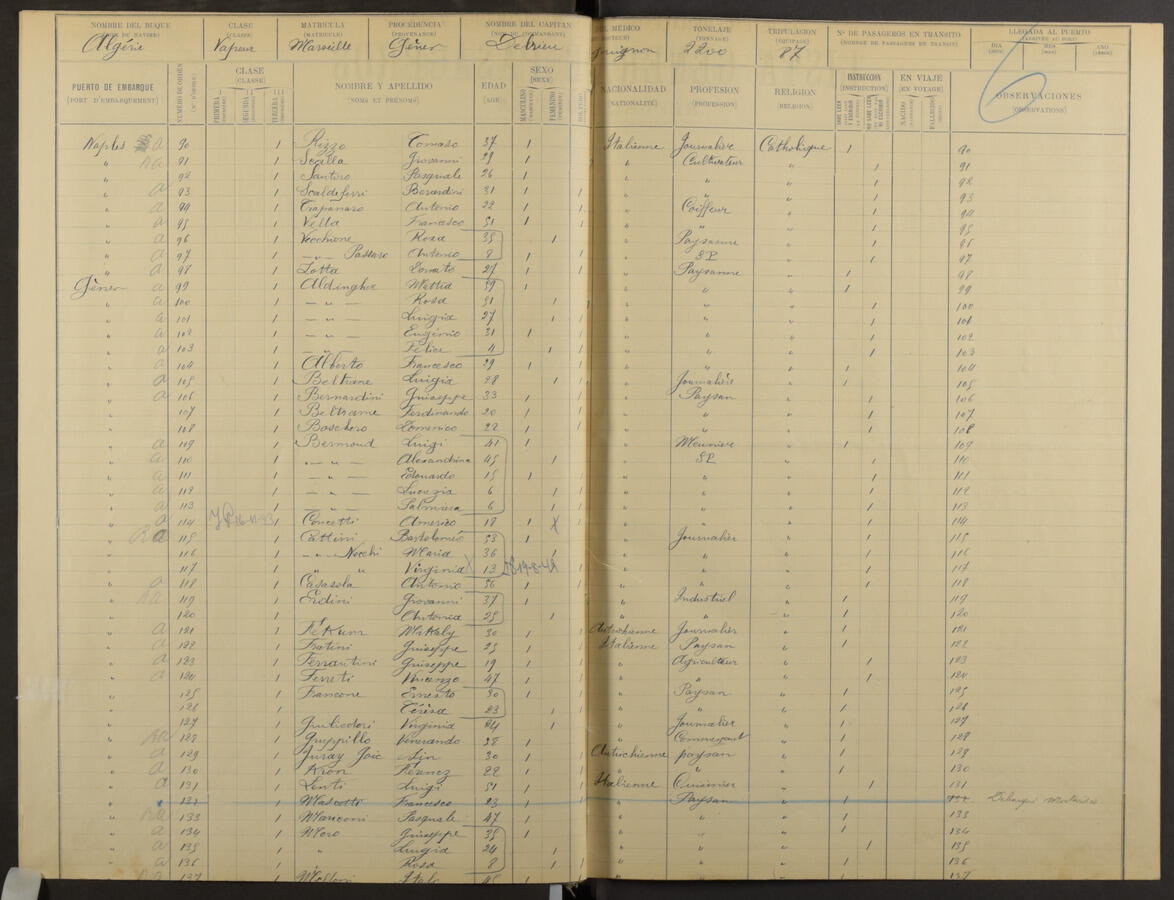 NOMBRE DEL BUQUE CLASE MATRICULA PROCEDENCIA NOMBRE DEL CAPITAN DEL MÉDICO TONELAJE TRIPULACION Nº DE PASAGEROS EN TRÁNSITO LLEGADA AL PUERTO
(NOM DU NAVIRE) (CLASSE) (MATRICULE) (PROVENANCE) (NOM DU COMMANDANT) (TONNAGE) (EQUIPAGE) (NOMBRE DE PASSAGERS EN TRANSIT) (ARRIVÉE AU PORT)
Algérie Vapeur Marseille Gêner 2200 87 DIA MES AÑO
PUERTO DE EMBARQUE NUMERO DE ORDEN CLASE NOMBRE Y APELLIDO EDAD SEXO NACIONALIDAD PROFESION RELIGION INSTRUCCION EN VIAJE OBSERVACIONES
(PORT D'EMBARQUEMENT) (CLASSE) (NOMS ET PRÉNOMS) (AGE) (SEXE) (NATIONALITÉ) (PROFESSION) (RELIGION) (INSTRUCTION) (EN VOYAGE) (OBSERVATIONS)
PRIMERA SEGUNDA TERCERA MASCULINO FEMENINO NACIDO FALLECIDO
Naples a 90 1 Rizzo Tomaso 37 1 Italienne Journalier Catholique 1 90
" 91 1 Giovanni 29 1 " Cultivateur " 1 91
" 92 1 Santoro Pasquale 26 1 " " " 1 92
" a 93 1 Scaldeferri Berardini 31 1 " " " 1 93
" a 94 1 Trapanaro Antonio 22 1 " Coiffeur " 1 94
" a 95 1 Vella Francesco 51 1 " " " 1 95
" a 96 1 Vecchione Rosa 35 1 " Paysanne " 1 96
" a 97 1 — " — Passaro Antonio 8 " S.P. " 1 97
" a 98 1 Lotta Donato 27 1 " Paysanne " 1 98
Gêner a 99 1 Aldinghe Mattia 59 " " " 1 99
" a 100 1 — " — Rosa 51 1 " " " 1 100
" a 101 1 — " — Luigia 27 1 " " " 1 101
" a 102 1 — " — Eugénio 31 1 " " " 1 102
" a 103 1 — " — Felice 4 1 " " " 1 103
" a 104 1 Alberto Francesco 29 1 " " " 1 104
" a 105 1 Beltrame Luigia 28 1 " Journalière " 1 105
" a 106 1 Bernardini Guiseppe 33 1 " Paysan " 1 106
" 107 1 Beltrame Ferdinando 20 1 " " " 1 107
" 108 1 Boschero Domenico 22 1 " " " 1 108
" a 109 1 Bermond Luigi 41 1 " Meunier " 1 109
" a 110 1 — " — Alexandrina 45 1 " S.P. " 1 110
" a 111 1 — " — Edouardo 15 1 " " " 1 111
" a 112 1 — " — Lucrezia 6 1 " " " 1 112
" a 113 1 — " — Palmira 6 1 " " " 1 113
" a 114 1 Concetti Americo 18 1 X " " " 1 114
" Ra 115 1 Cattini Bartolomeo 53 1 " Journalier " 1 115
" 116 1 — " — Nechi Maria 36 1 " " " 1 116
" 117 1 " " Virginia X 13 19-8-48 " " " 1 117
" a 118 1 Casasola Antonio 56 1 " " " 1 118
" Ra 119 1 Erdini Giovanni 37 1 " Industriel " 1 119
" 120 1 " Antonia 25 1 " " " 1 120
" a 121 1 Mikaly 30 1 Autrichienne Journalier " 1 121
" a 122 1 Fratini Guiseppe 25 1 Italienne Paysan " 1 122
" a 123 1 Ferrantini Guiseppe 19 1 " Agriculteur " 1 123
" a 124 1 Ferreti Vincenzo 47 1 " " " 1 124
" 125 1 Francone Ernesto 30 1 " Paysan " 1 125
" 126 1 " Térésa 23 1 " " " 1 126
" 127 1 Virginia 24 1 " Journalier " 1 127
" Ra 128 1 Guppillo Venerando 38 1 " Commerçant " 1 128
" a 129 1 Juray Joic 30 1 Autrichienne paysan " 1 129
" a 130 1 Kron 22 1 " " " 1 130
" a 131 1 Lenti Luigi 51 1 Italienne Cuisinier " 1 131
" 132 1 Mascotti Francesco 23 1 " Paysan " 1 132
" Ra 133 1 Mariconi Pasquale 47 1 " " " 1 133
" a 134 1 Moro Guiseppe 35 1 " " " 1 134
" a 135 1 " Luigia 24 1 " " " 1 135
" a 136 1 " Rosa 8 1 " " " 1 136
" Ra 137 1 Italo 1 " " " 1 137